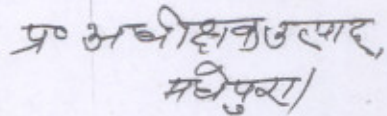 प्र० अधीक्षक उत्पाद,
मधेपुरा।